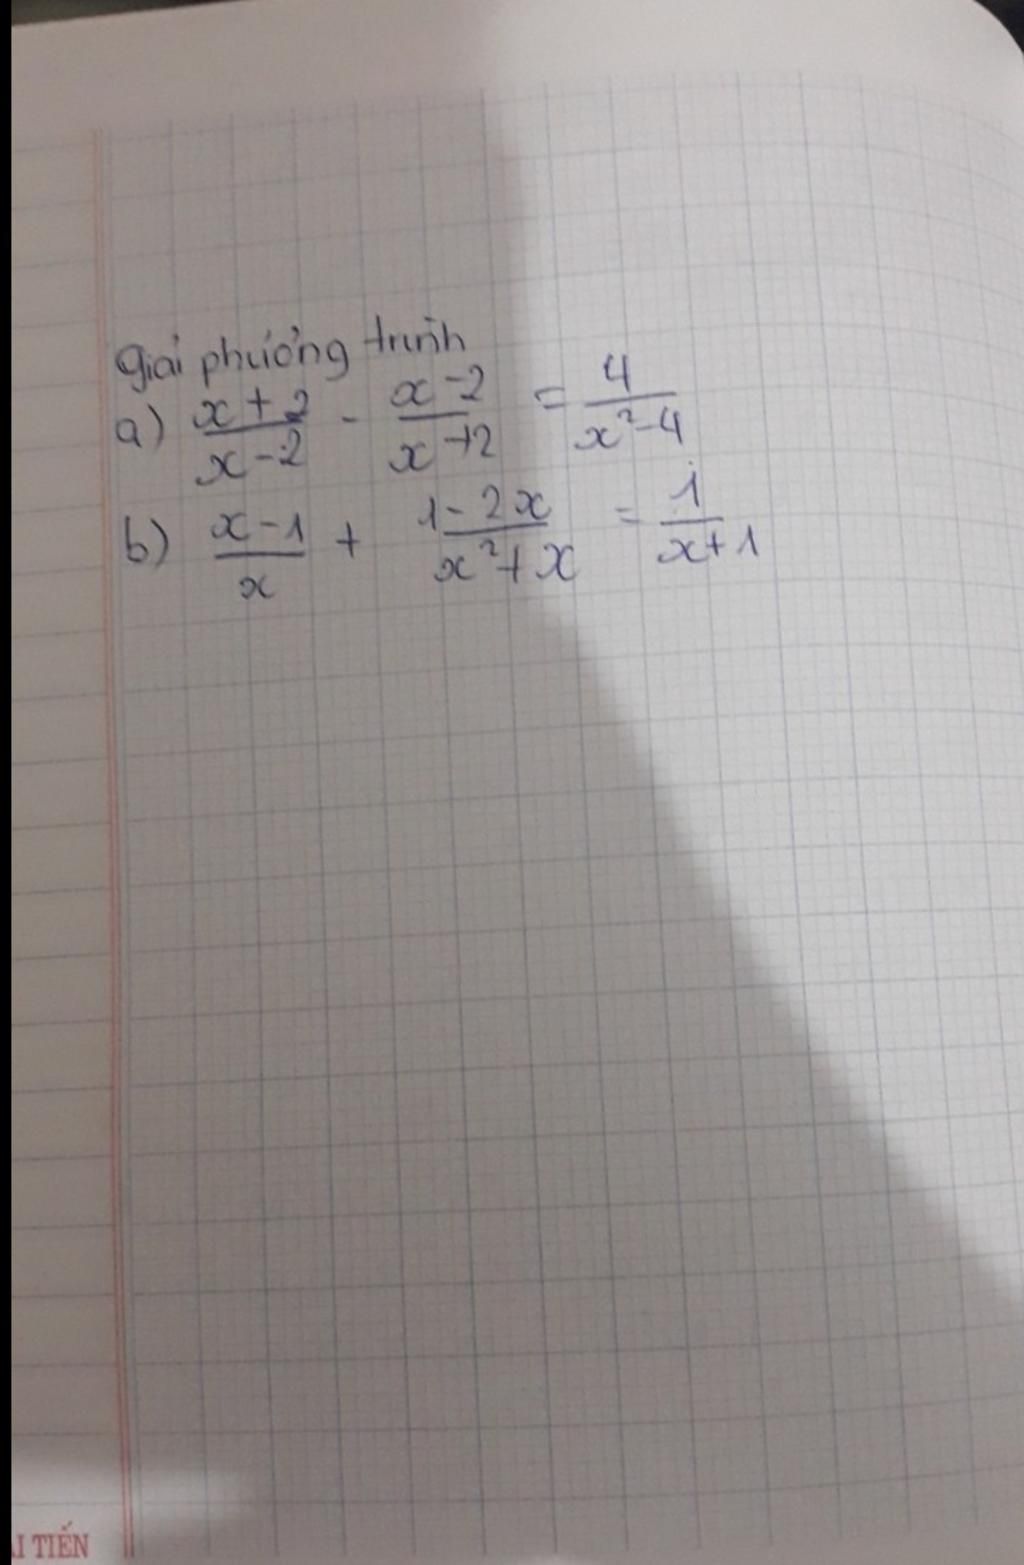 giải phương trình
a) \frac{x+2}{x-2} - \frac{x-2}{x+2} = \frac{4}{x^2-4}
b) \frac{x-1}{x} + \frac{1-2x}{x^2+x} = \frac{1}{x+1}
I TIẾN